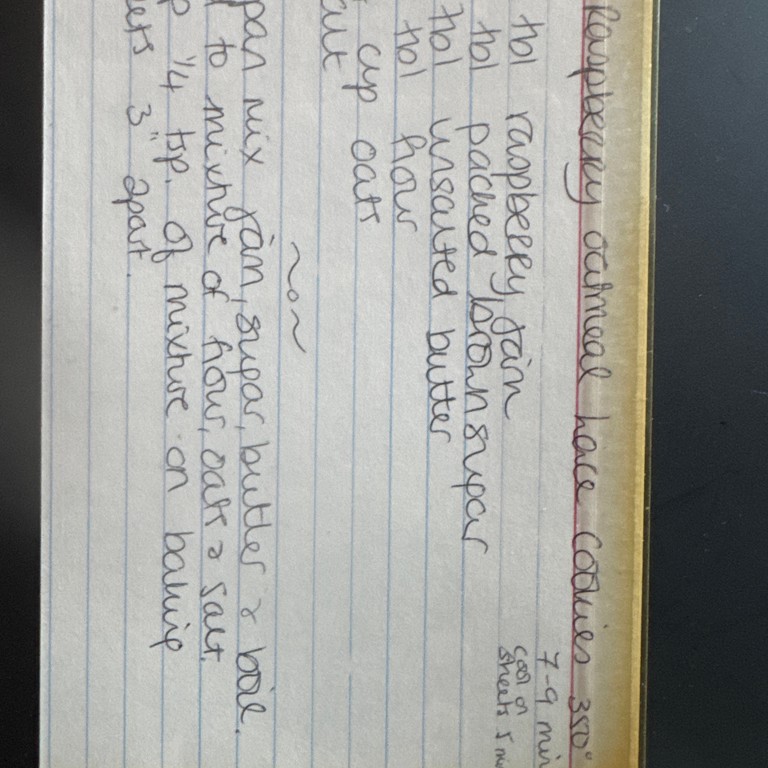 Raspberry oatmeal lace cookies 350°
7-9 min
cool on
sheets 5
tbl raspberry jam
tbl packed brown sugar
tbl unsalted butter
tbl flour
cup oats
pan mix jam, sugar, butter & boil.
to mixture of flour, oats & salt.
1/4 tsp. of mixture on baking
3" apart.